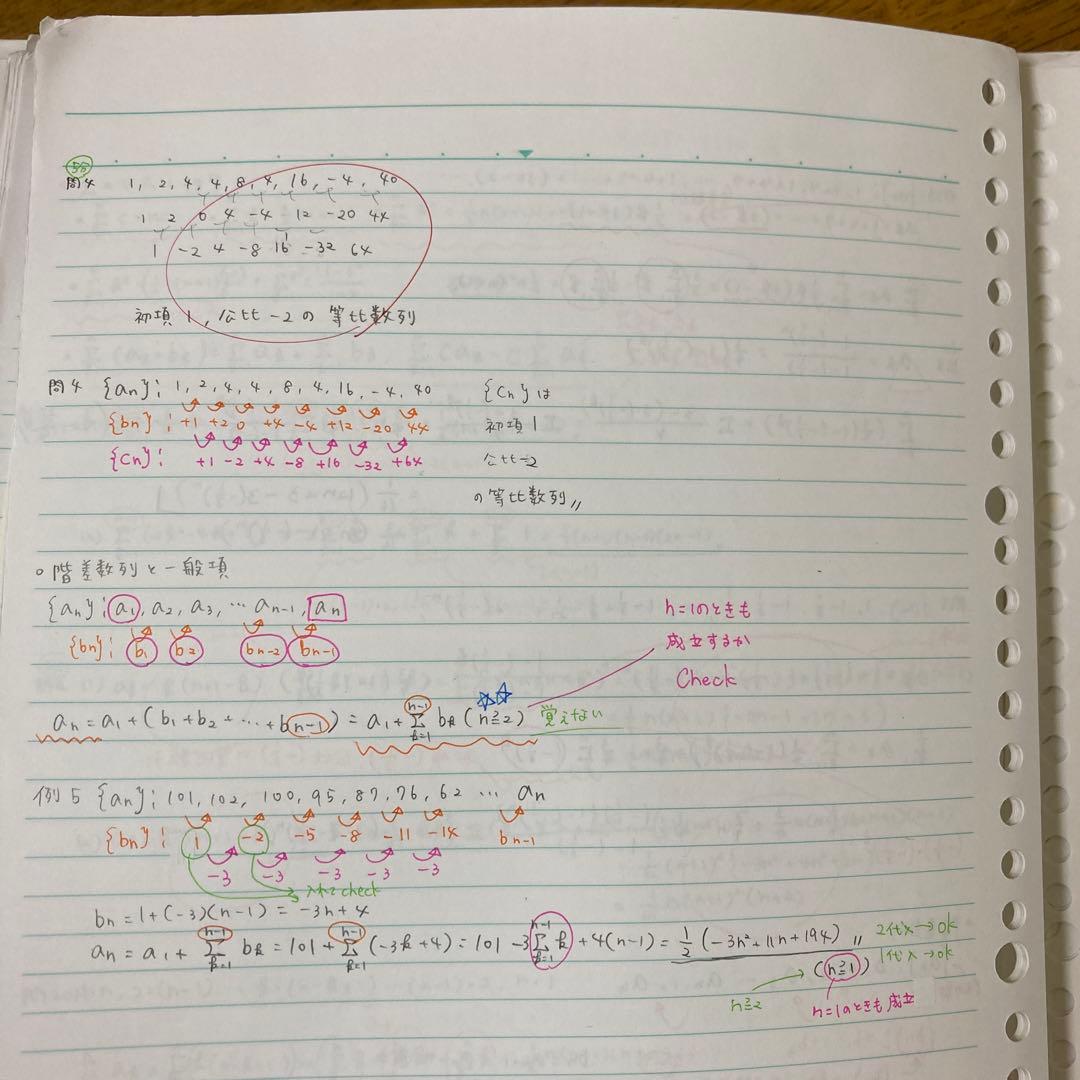 5/5
問4 1, 2, 4, 4, 8, 4, 16, -4, 40
1 2 0 4 -4 12 -20 44
1 -2 4 -8 16 -32 64
初項1, 公比-2の等比数列
問4 {an}: 1, 2, 4, 4, 8, 4, 16, -4, 40 {Cn}は
{bn}: +1 +2 0 +4 -4 +12 -20 44 初項1
{Cn}: +1 -2 +4 -8 +16 -32 +64 公比-2
の等比数列〃
○階差数列と一般項
{an}: a1, a2, a3, … an-1, an n=1のときも
{bn}: b1 b2 bn-2 bn-1 成立するか
Check
an = a1 + (b1+b2+…+bn-1) = a1 + Σ[k=1, n-1] bk (n≧2) ☆☆ 覚えない
例5 {an}: 101, 102, 100, 95, 87, 76, 62 … an
{bn}: 1 -2 -5 -8 -11 -14 bn-1
-3 -3 -3 -3 -3
入れてcheck
bn = 1+(-3)(n-1) = -3n+4
an = a1 + Σ[k=1, n-1] bk = 101 + Σ[k=1, n-1] (-3k+4) = 101 -3Σ[k=1, n-1] k + 4(n-1) = 1/2(-3n²+11n+194)〃 2代入→ok
(n≧1) 1代入→ok
n≧2 n=1のときも成立